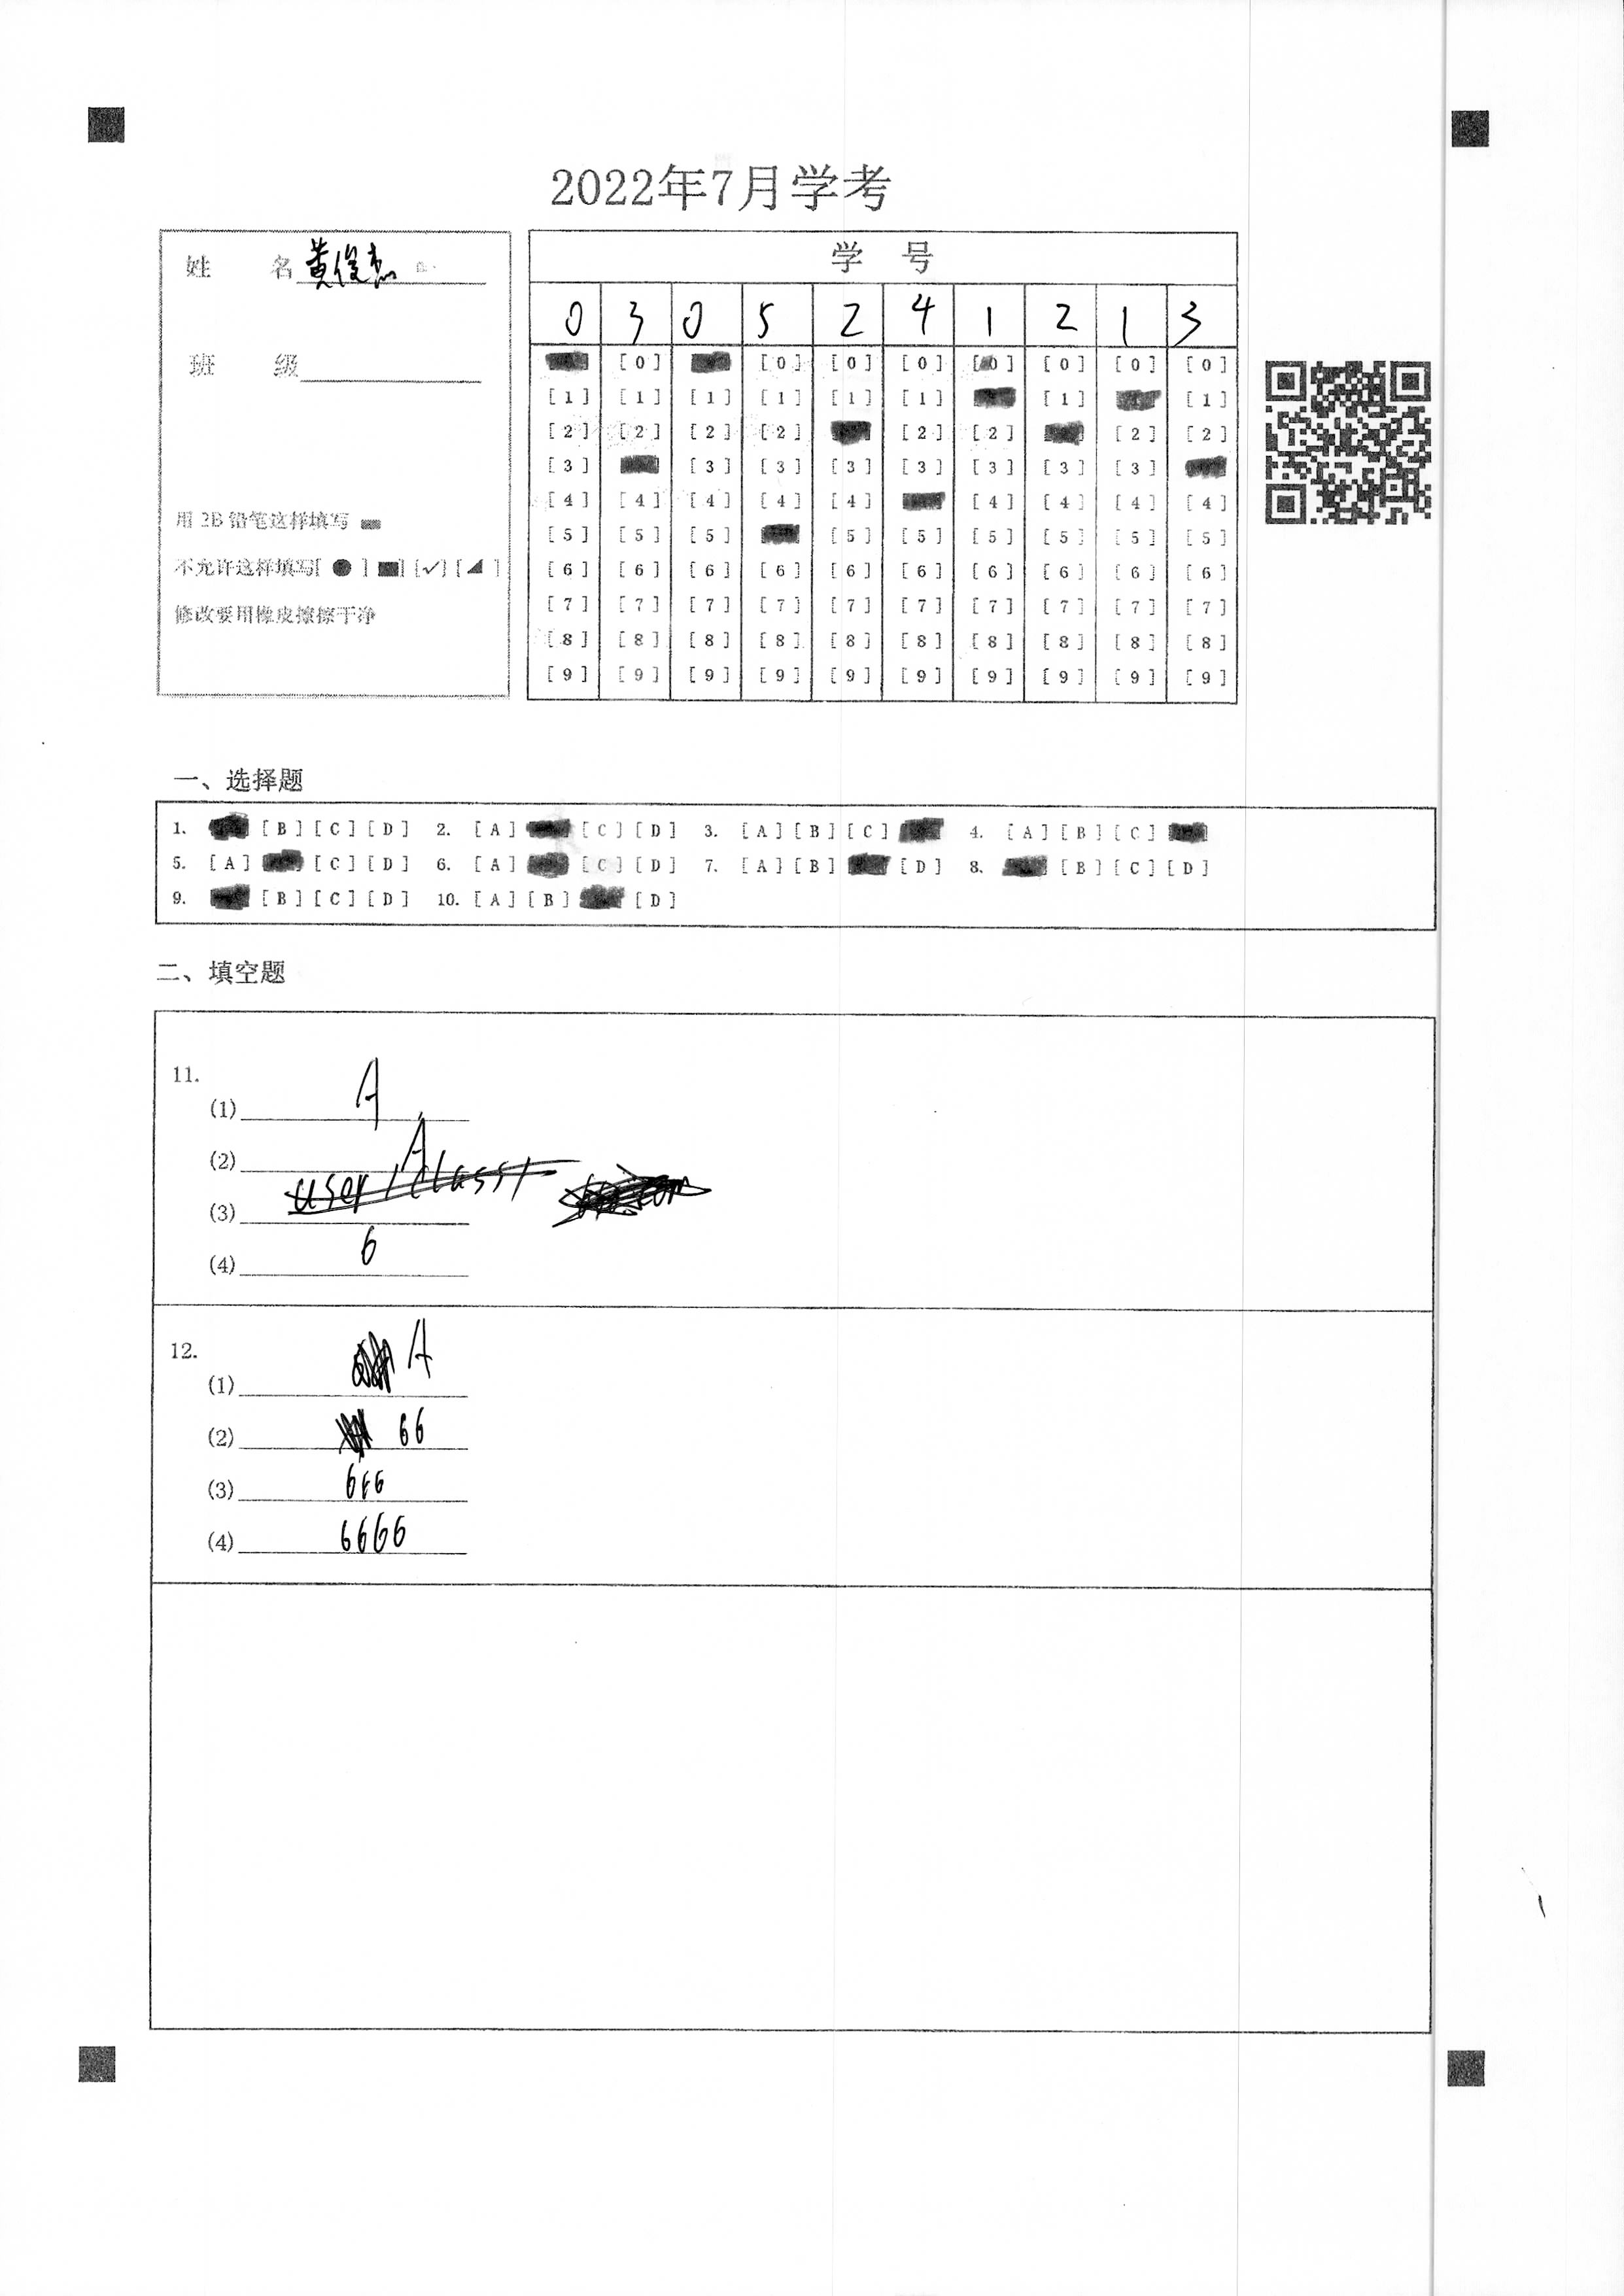 2022年7月学考
姓 名 黄俊杰
班 级
用 2B 铅笔这样填写
不允许这样填写[ ● ] [■] [✓] [◢ ]
修改要用橡皮擦擦干净
学 号
0 3 0 5 2 4 1 2 1 3
[0] [0] [0] [0] [0] [0] [0] [0]
[1] [1] [1] [1] [1] [1] [1] [1]
[2] [2] [2] [2] [2] [2] [2] [2]
[3] [3] [3] [3] [3] [3] [3] [3]
[4] [4] [4] [4] [4] [4] [4] [4] [4]
[5] [5] [5] [5] [5] [5] [5] [5] [5]
[6] [6] [6] [6] [6] [6] [6] [6] [6] [6]
[7] [7] [7] [7] [7] [7] [7] [7] [7] [7]
[8] [8] [8] [8] [8] [8] [8] [8] [8] [8]
[9] [9] [9] [9] [9] [9] [9] [9] [9] [9]
一、选择题
1. [B] [C] [D] 2. [A] [C] [D] 3. [A] [B] [C] 4. [A] [B] [C]
5. [A] [C] [D] 6. [A] [C] [D] 7. [A] [B] [D] 8. [B] [C] [D]
9. [B] [C] [D] 10. [A] [B] [D]
二、填空题
11.
(1) A
(2) A
(3)
(4) 6
12.
(1) A
(2) 66
(3) 666
(4) 6666